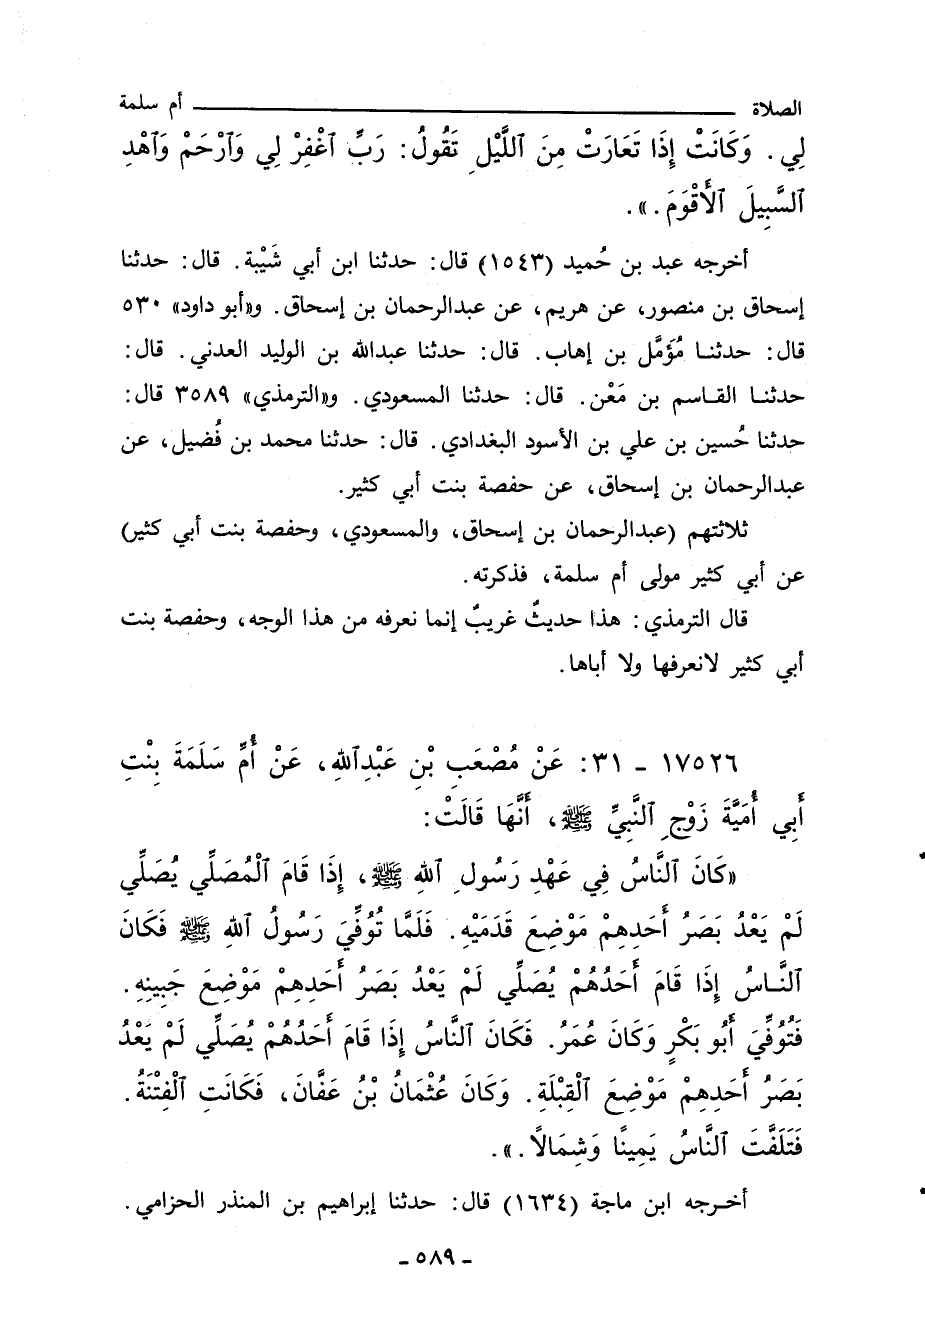 الصلاة ـــــــــــــــــ أم سلمة
لِي. وَكَانَتْ إِذَا تَعَارَتْ مِنَ ٱللَّيْلِ تَقُولُ: رَبِّ ٱغْفِرْ لِي وَٱرْحَمْ وَٱهْدِ
ٱلسَّبِيلَ ٱلْأَقْوَمَ.».
أخرجه عبد بن حُميد (١٥٤٣) قال: حدثنا ابن أبي شَيْبة. قال: حدثنا
إسحاق بن منصور، عن هريم، عن عبدالرحمان بن إسحاق. و«أبو داود» ٥٣٠
قال: حدثنا مُؤَمَّل بن إهاب. قال: حدثنا عبدالله بن الوليد العدني. قال:
حدثنا القاسم بن مَعْن. قال: حدثنا المسعودي. و«الترمذي» ٣٥٨٩ قال:
حدثنا حُسين بن علي بن الأسود البغدادي. قال: حدثنا محمد بن فُضيل، عن
عبدالرحمان بن إسحاق، عن حفصة بنت أبي كثير.
ثلاثتهم (عبدالرحمان بن إسحاق، والمسعودي، وحفصة بنت أبي كثير)
عن أبي كثير مولى أم سلمة، فذكرته.
قال الترمذي: هذا حديثٌ غريبٌ إنما نعرفه من هذا الوجه، وحفصة بنت
أبي كثير لانعرفها ولا أباها.
١٧٥٢٦ - ٣١: عَنْ مُصْعَبِ بْنِ عَبْدِٱللهِ، عَنْ أُمِّ سَلَمَةَ بِنْتِ
أَبِي أُمَيَّةَ زَوْجِ ٱلنَّبِيِّ ﷺ، أَنَّهَا قَالَتْ:
«كَانَ ٱلنَّاسُ فِي عَهْدِ رَسُولِ ٱللهِ ﷺ، إِذَا قَامَ ٱلْمُصَلِّي يُصَلِّي
لَمْ يَعْدُ بَصَرُ أَحَدِهِمْ مَوْضِعَ قَدَمَيْهِ. فَلَمَّا تُوُفِّيَ رَسُولُ ٱللهِ ﷺ فَكَانَ
ٱلنَّاسُ إِذَا قَامَ أَحَدُهُمْ يُصَلِّي لَمْ يَعْدُ بَصَرُ أَحَدِهِمْ مَوْضِعَ جَبِينِهِ.
فَتُوُفِّيَ أَبُو بَكْرٍ وَكَانَ عُمَرُ. فَكَانَ ٱلنَّاسُ إِذَا قَامَ أَحَدُهُمْ يُصَلِّي لَمْ يَعْدُ
بَصَرُ أَحَدِهِمْ مَوْضِعَ ٱلْقِبْلَةِ. وَكَانَ عُثْمَانُ بْنُ عَفَّانَ، فَكَانَتِ ٱلْفِتْنَةُ.
فَتَلَفَّتَ ٱلنَّاسُ يَمِينًا وَشِمَالاً.».
أخرجه ابن ماجة (١٦٣٤) قال: حدثنا إبراهيم بن المنذر الحزامي.
- ٥٨٩ -